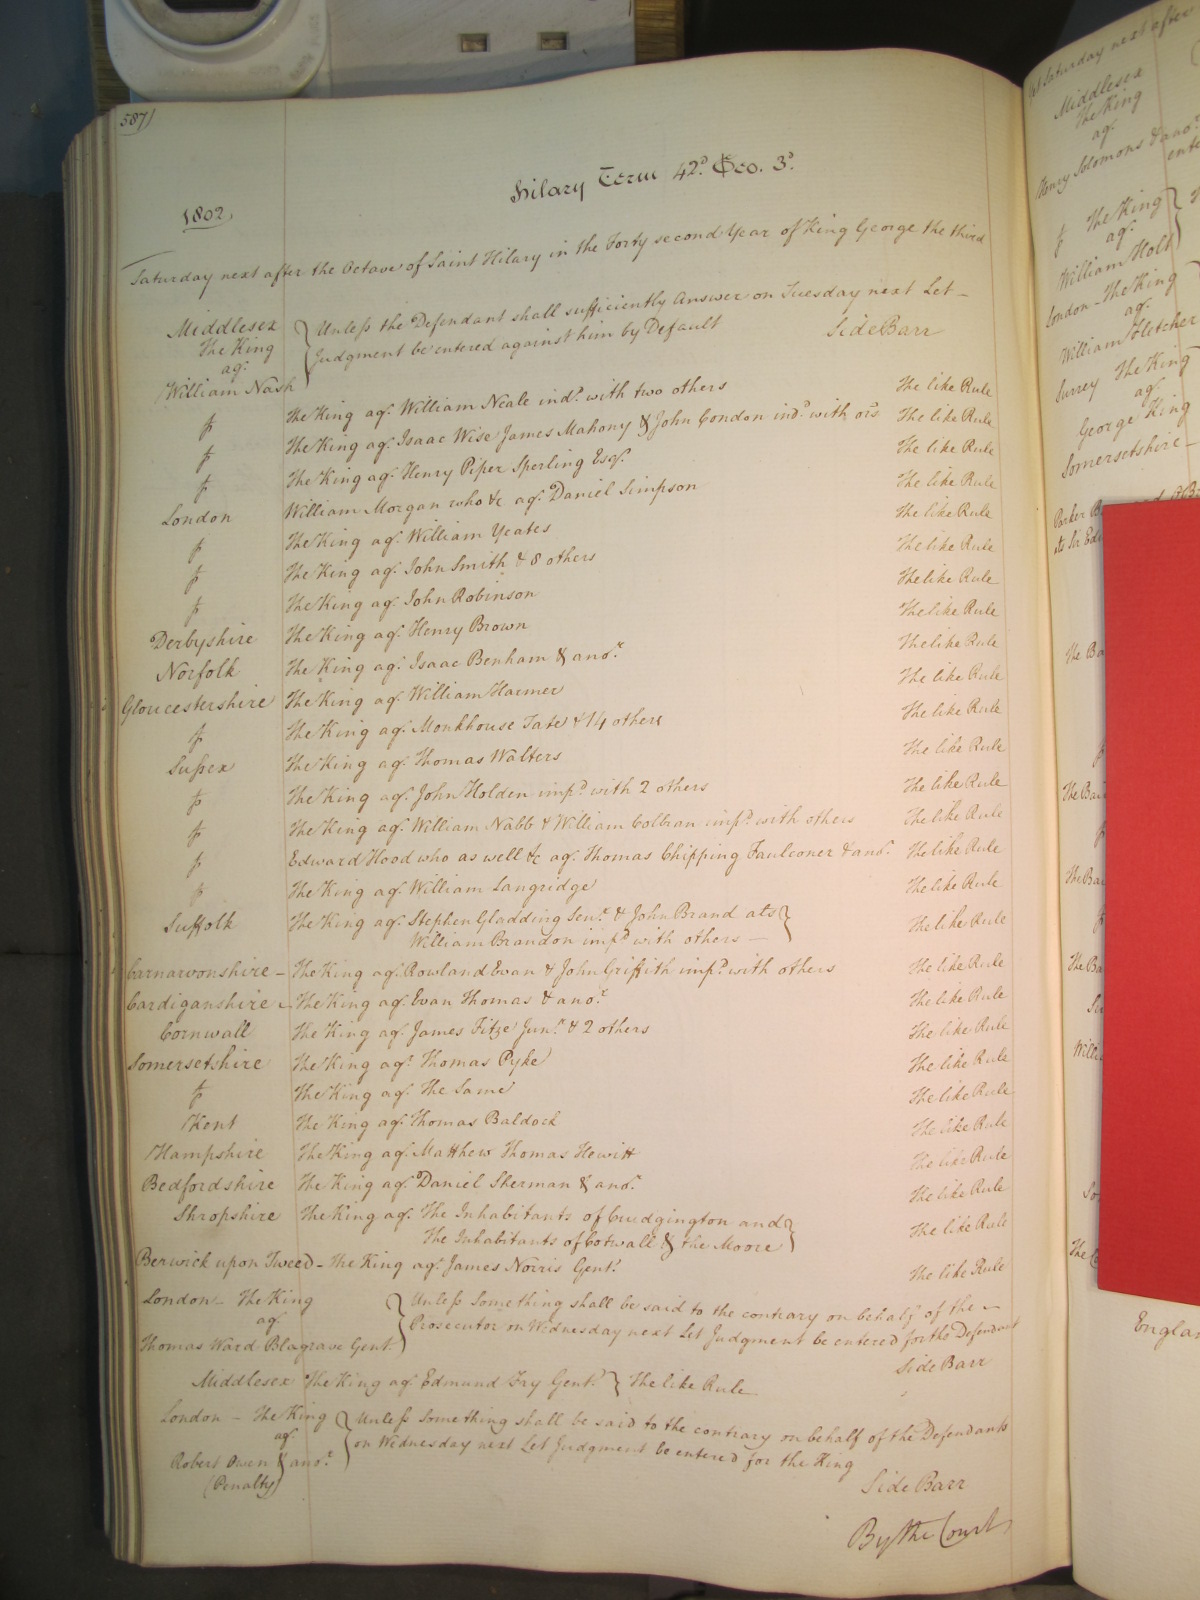 587)
Hilary Term 42d. Geo. 3d.
1802
Saturday next after the Octave of Saint Hilary in the Forty second Year of King George the third
Middlesex
The King
agt.
William Nash
Unless the Defendant shall sufficiently Answer on Tuesday next Let
Judgment be entered against him by Default
Side Barr
The King agt. William Neale indd. with two others The like Rule
The King agt. Isaac Wise James Mahony & John Condon indd. with ors. The like Rule
The King agt. Henry Piper Sperling Esqr. The like Rule
London William Morgan who &c agt. Daniel Simpson The like Rule
The King agt. William Yeates The like Rule
The King agt. John Smith & 8 others The like Rule
The King agt. John Robinson The like Rule
Derbyshire The King agt. Henry Brown The like Rule
Norfolk The King agt. Isaac Benham & anor. The like Rule
Gloucestershire The King agt. William Harmer The like Rule
The King agt. Monkhouse Tate & 14 others The like Rule
Sussex The King agt. Thomas Walters The like Rule
The King agt. John Holden impd. with 2 others The like Rule
The King agt. William Nabb & William Colbran impd. with others The like Rule
Edward Hood who as well &c agt. Thomas Chipping Faulconer & anor. The like Rule
The King agt. William Langridge The like Rule
Suffolk The King agt. Stephen Gladding Senr. & John Brand ats The like Rule
William Brandon impd. with others
Carnarvonshire - The King agt. Rowland Evan & John Griffith impd. with others The like Rule
Cardiganshire - The King agt. Evan Thomas & anor. The like Rule
Cornwall The King agt. James Fitze Junr. & 2 others The like Rule
Somersetshire The King agt. Thomas Pyke The like Rule
The King agt. The Same The like Rule
Kent The King agt. Thomas Baldock The like Rule
Hampshire The King agt. Matthew Thomas Hewitt The like Rule
Bedfordshire The King agt. Daniel Sherman & anor. The like Rule
Shropshire The King agt. The Inhabitants of Crudgington and The like Rule
The Inhabitants of Cotwall & the Moore
Berwick upon Tweed - The King agt. James Norris Gent. The like Rule
London - The King
agt.
Thomas Ward Blagrave Gent.
Unless Something shall be said to the contrary on behalf of the
Prosecutor on Wednesday next Let Judgment be entered for the Defendant
Side Barr
Middlesex The King agt. Edmund Fry Gent. The like Rule
London - The King
agt.
Robert Owen & anor.
(Penalty)
Unless Something shall be said to the contrary on behalf of the Defendants
on Wednesday next Let Judgment be entered for the King
Side Barr
By the Court
Saturday next after
Middlesex
The King
agt.
Henry Solomons & anor.
The King
agt.
William Holt
London - The King
agt.
William Fletcher
Surrey The King
agt.
George King
Somersetshire -